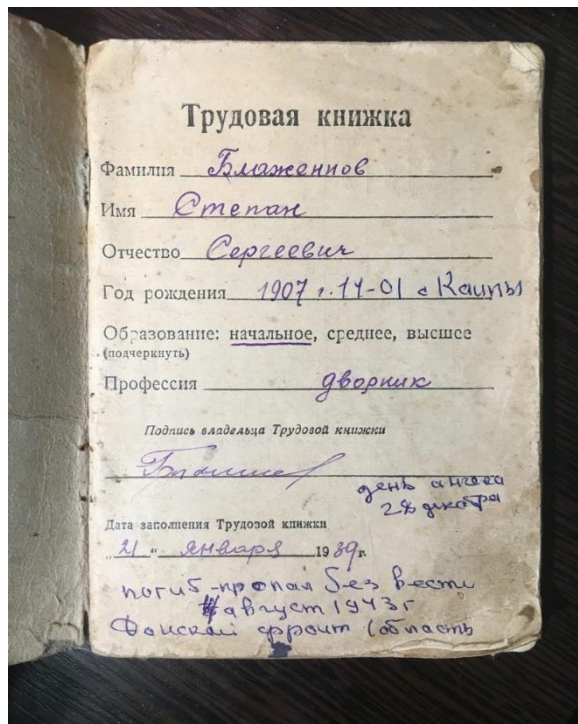 Трудовая книжка
Фамилия Блаженнов
Имя Степан
Отчество Сергеевич
Год рождения 1907 г. 14-01 с Каипы
Образование: начальное, среднее, высшее
(подчеркнуть)
Профессия дворник
Подпись владельца Трудовой книжки
день ангела
28 декабря
Дата заполнения Трудовой книжки
„21“ января 1939г.
погиб-пропал без вести
август 1943г
Донской фронт (область